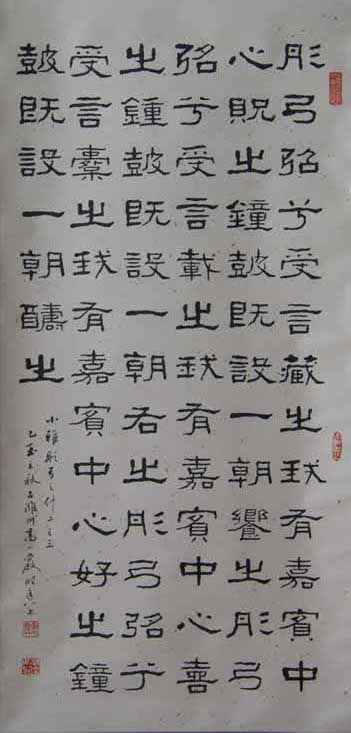 彤弓弨兮受言藏之我有嘉賓中
心貺之鐘鼓既設一朝饗之彤弓
弨兮受言載之我有嘉賓中心喜
之鐘鼓既設一朝右之彤弓弨兮
受言櫜之我有嘉賓中心好之鐘
鼓既設一朝醻之
小雅彤弓之什二之三
乙酉之秋古濰州高